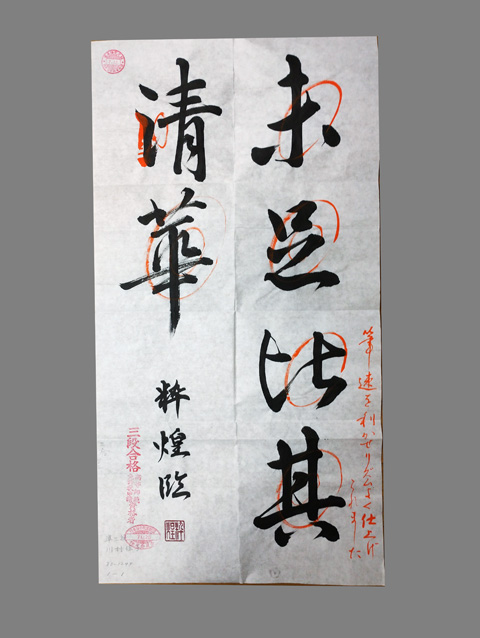 未足比其
清華
粋煌臨
筆速を利かせリズムよく仕上げ
られました
三段合格